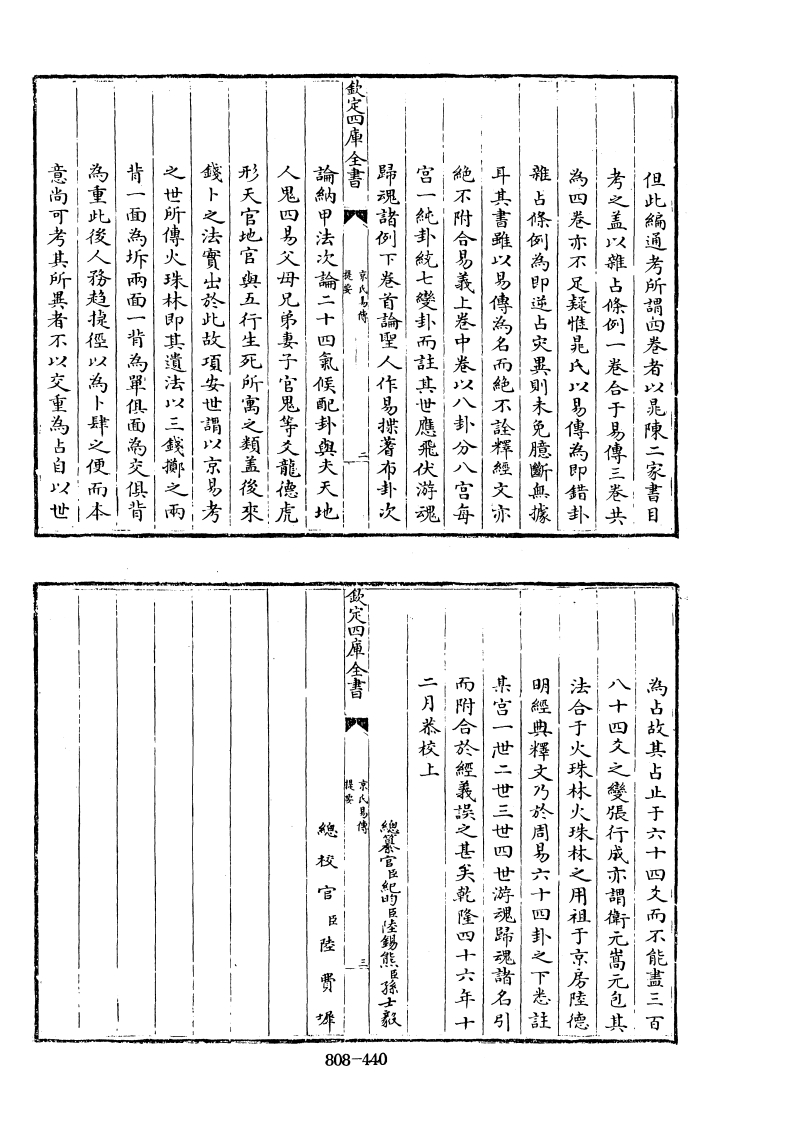 但此編通考所謂四卷者以晁陳二家書目
考之盖以雜占條例一卷合于易傳三卷共
為四卷亦不足疑惟晁氏以易傳為即錯卦
雜占條例為即逆占灾異則未免臆斷無據
耳其書雖以易傳為名而絶不詮釋經文亦
絶不附合易義上卷中卷以八卦分八宫每
宫一純卦統七變卦而註其世應飛伏游魂
歸魂諸例下卷首論聖人作易揲蓍布卦次
欽定四庫全書
京氏易傳
提要
二
論納甲法次論二十四氣候配卦與夫天地
人鬼四易父母兄弟妻子官鬼等爻龍德虎
形天官地官與五行生死所寓之類盖後來
錢卜之法實出於此故項安世謂以京易考
之世所傳火珠林即其遺法以三錢擲之兩
背一面為坼兩面一背為單俱面為交俱背
為重此後人務趨捷徑以為卜肆之便而本
意尚可考其所異者不以交重為占自以世
為占故其占止于六十四爻而不能盡三百
八十四爻之變張行成亦謂衛元嵩元包其
法合于火珠林火珠林之用祖于京房陸德
明經典釋文乃於周易六十四卦之下悉註
某宫一世二世三世四世游魂歸魂諸名引
而附合於經義誤之甚矣乾隆四十六年十
二月恭校上
總纂官臣紀昀臣陸錫熊臣孫士毅
欽定四庫全書
京氏易傳
提要
三
總校官臣陸費墀
808-440